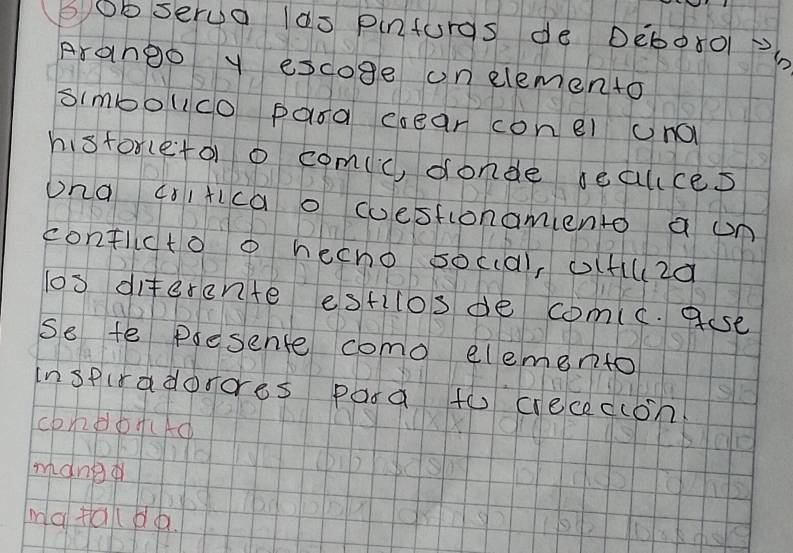 3) Observa las pinturas de Débora
Arango y escoge un elemento
simbolico para crear con el una
historieta o comic, donde realices
una critica o cuestionamiento a un
conflicto o hecho social, ultiliza
los diferente estilos de comic. que
se te presente como elemento
inspiradorores para tu crecación.
condorito
manga
mafalda